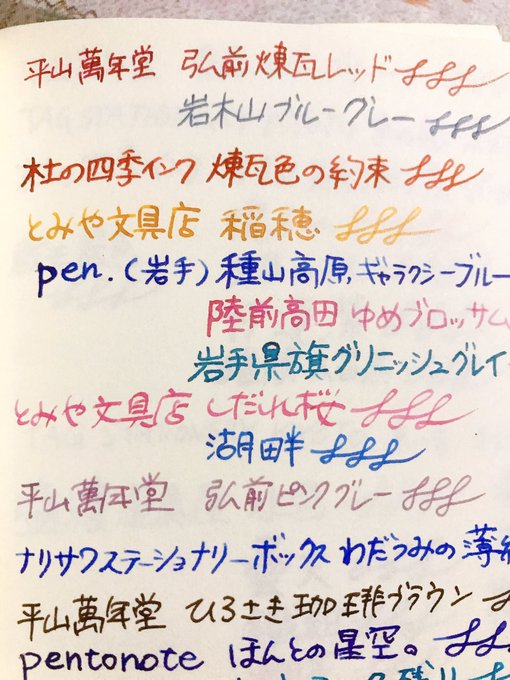 平山萬年堂 弘前煉瓦レッド
岩木山ブルーグレー
杜の四季インク 煉瓦色の約束
とみや文具店 稲穂
pen.(岩手)種山高原ギャラクシーブルー
陸前高田 ゆめブロッサム
岩手県旗グリニッシュグレイ
とみや文具店 しだれ桜
湖畔
平山萬年堂 弘前ピンクグレー
ナリサワステーショナリーボックス わだつみの薄
平山萬年堂 ひろさき珈琲ブラウン
pentonote ほんとの星空。